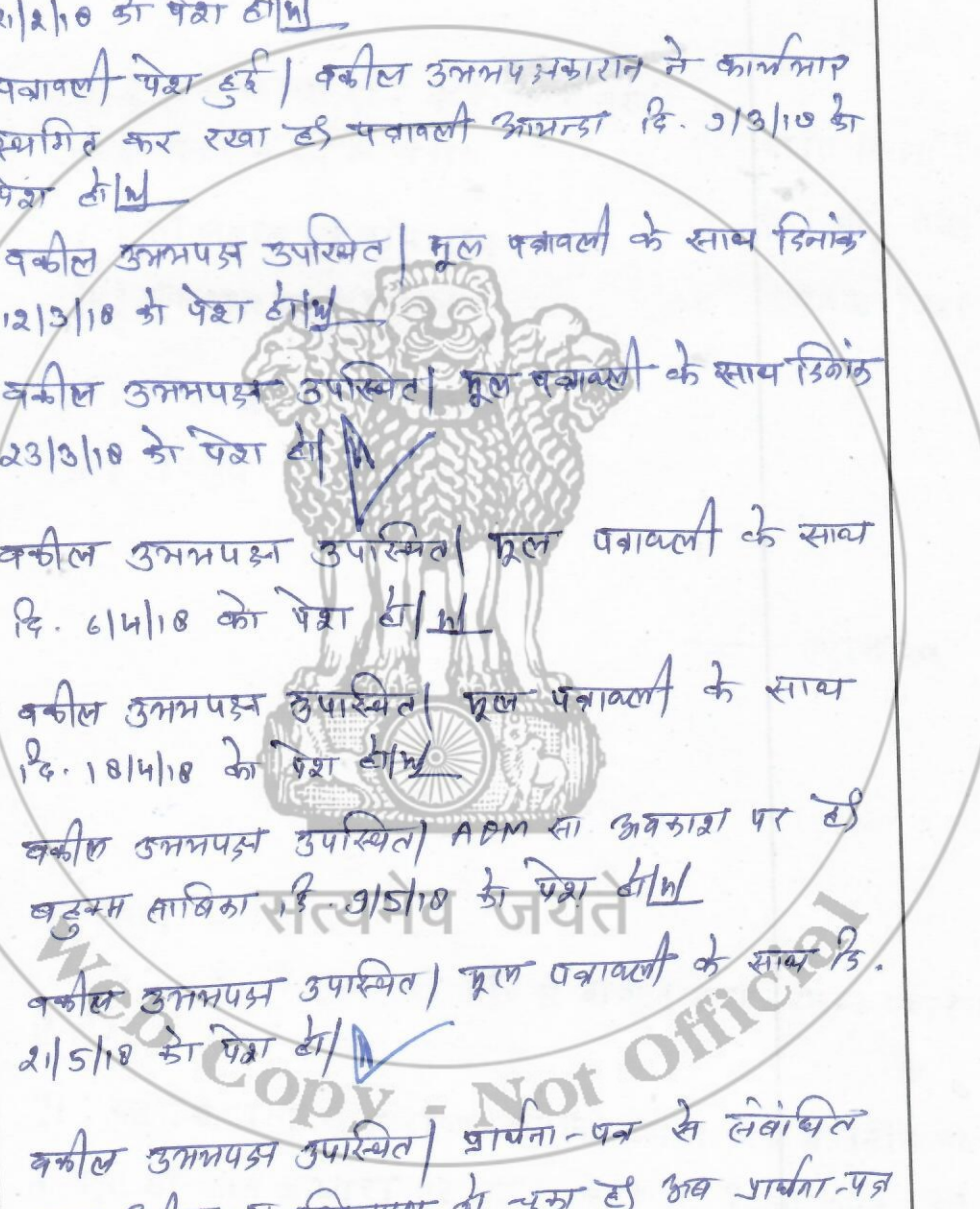 21/2/18 को पेश हो।
पत्रावली पेश हुई। वकील उभयपक्षकारान ने कार्यभार
स्थगित कर रखा है। पत्रावली आयन्दा दि. 9/3/18 को
पेश हो।
वकील उभयपक्ष उपस्थित। मूल पत्रावली के साथ दिनांक
12/3/18 को पेश हो।
वकील उभयपक्ष उपस्थित। मूल पत्रावली के साथ दिनांक
23/3/18 को पेश हो।
वकील उभयपक्ष उपस्थित। मूल पत्रावली के साथ
दि. 6/4/18 को पेश हो।
वकील उभयपक्ष उपस्थित। मूल पत्रावली के साथ
दि. 18/4/18 को पेश हो।
वकील उभयपक्ष उपस्थित। ADM सा. अवकाश पर है।
बहुक्म साबिका दि. 9/5/18 को पेश हो।
सत्यमेव जयते
वकील उभयपक्ष उपस्थित। मूल पत्रावली के साथ दि.
21/5/18 को पेश हो।
Web Copy - Not Official
वकील उभयपक्ष उपस्थित। प्रार्थना-पत्र से संबंधित
हो चुका है। अब प्रार्थना-पत्र